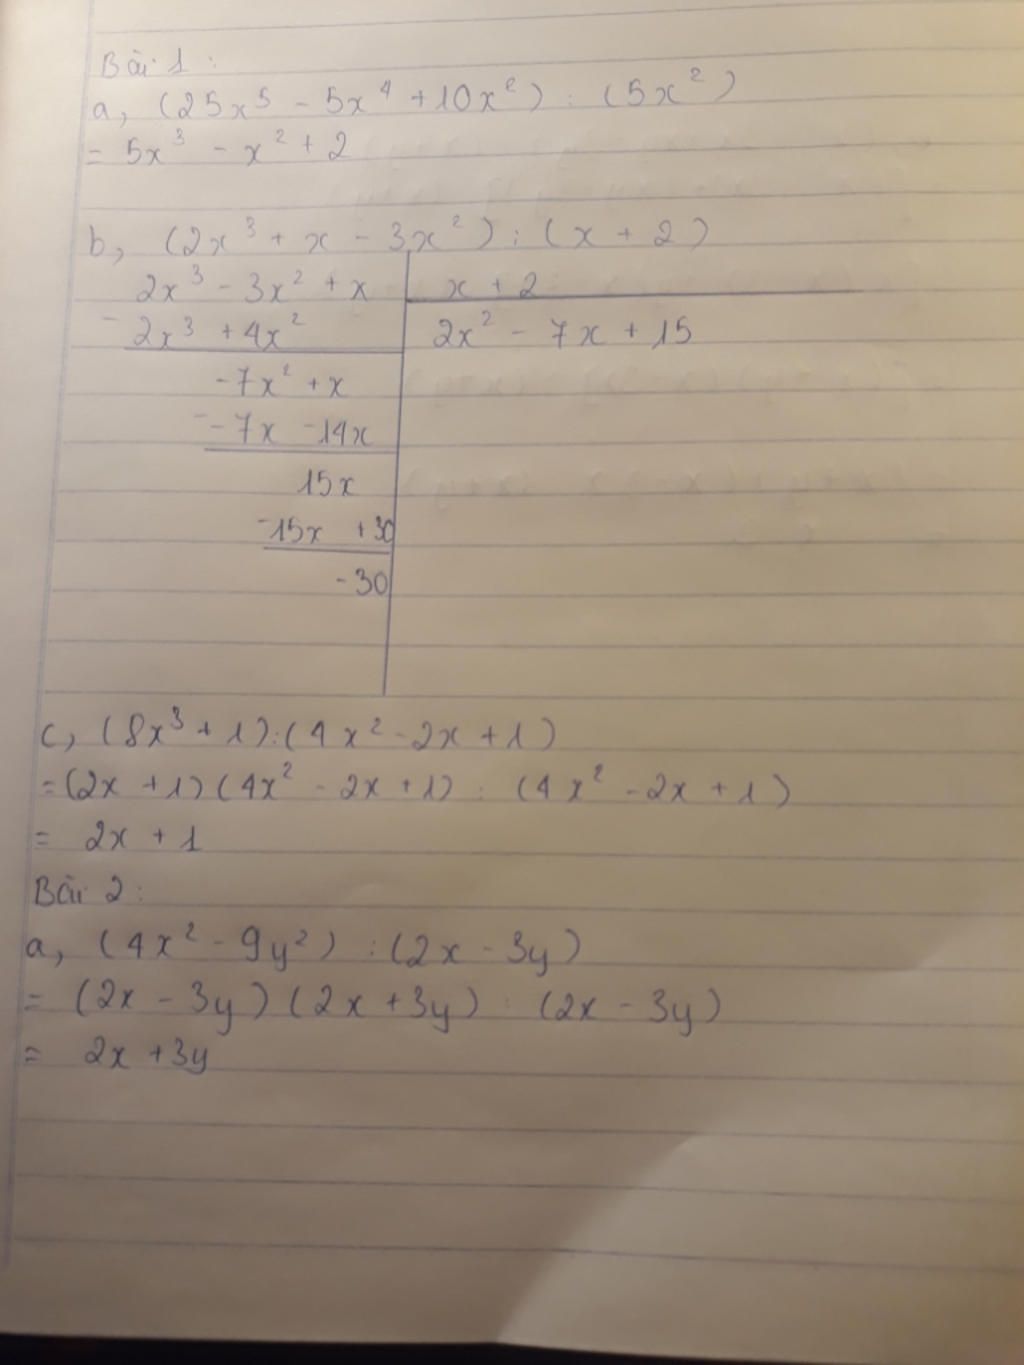 Bài 1 :
a, (25x⁵ - 5x⁴ + 10x²) : (5x²)
= 5x³ - x² + 2
b, (2x³ + x - 3x²) : (x + 2)
2x³ - 3x² + x | x + 2
- 2x³ + 4x² | 2x² - 7x + 15
-7x² + x
- -7x -14x
15x
- 15x + 30
-30
c, (8x³ + 1) : (4x² - 2x + 1)
= (2x + 1) (4x² - 2x + 1) : (4x² - 2x + 1)
= 2x + 1
Bài 2 :
a, (4x² - 9y²) : (2x - 3y)
= (2x - 3y) (2x + 3y) : (2x - 3y)
= 2x + 3y